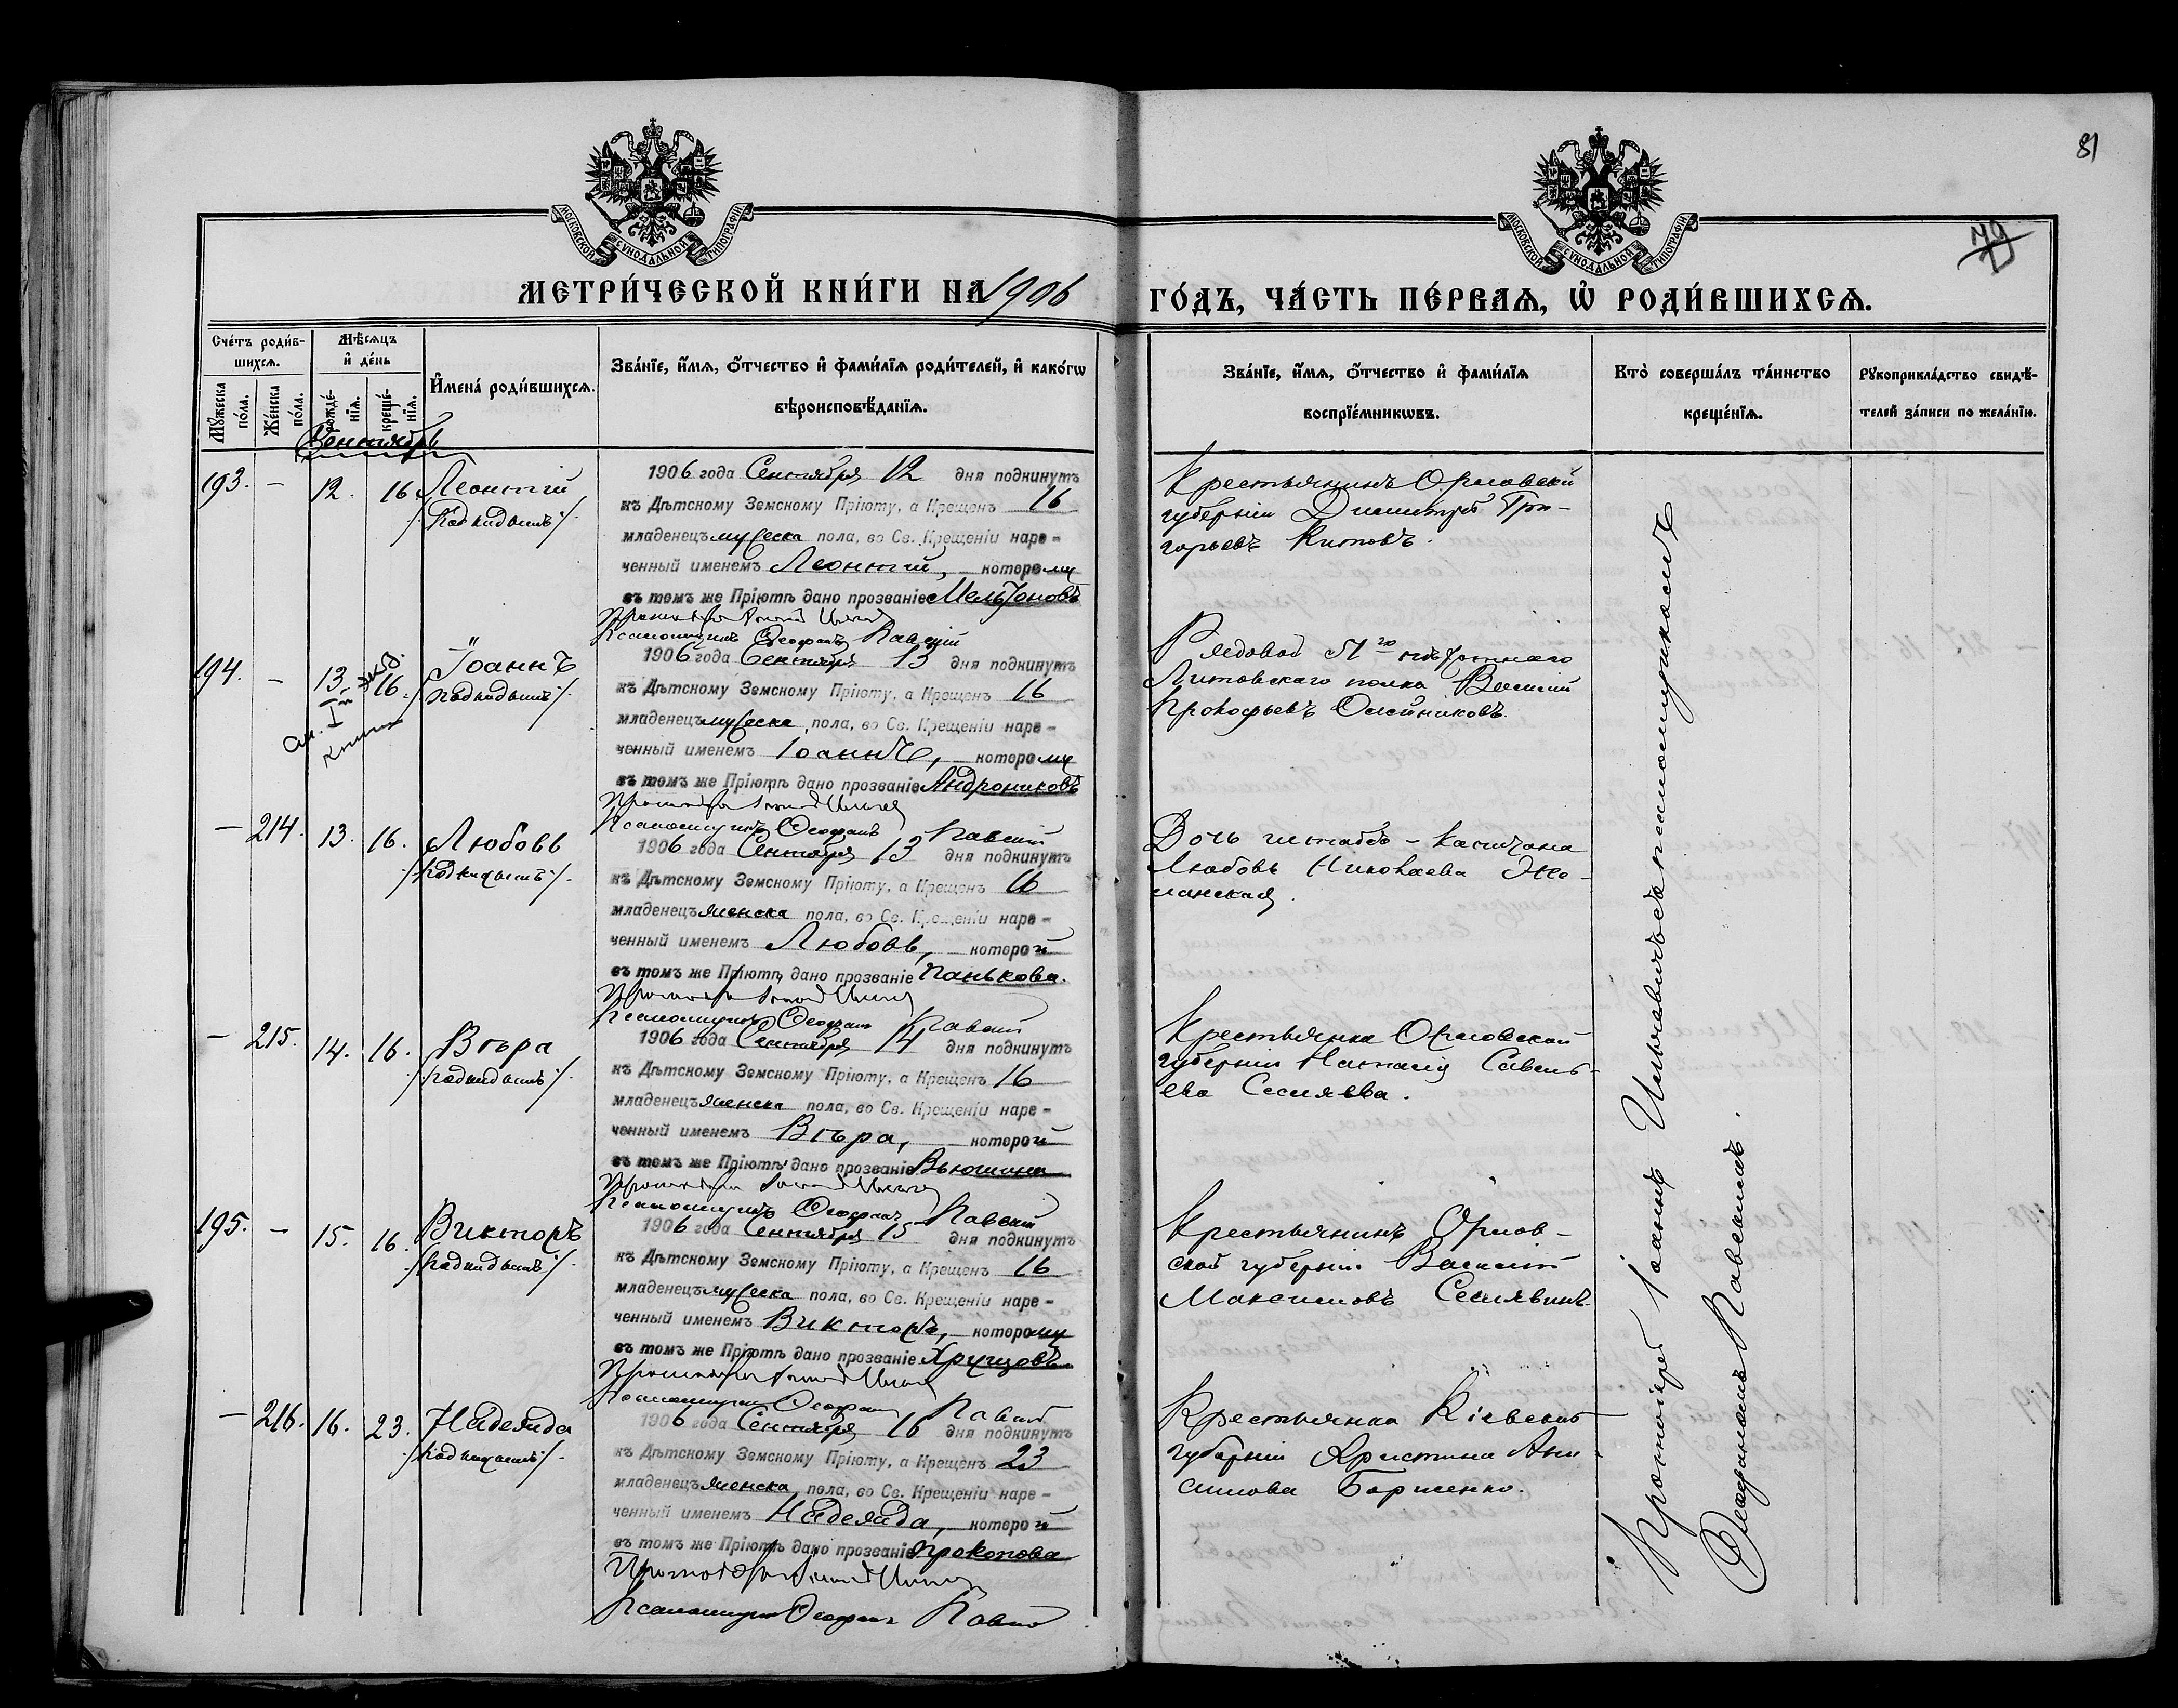 81
79
МОСКОВСКОЙ СУНОДАЛЬНОЙ ТИПОГРАФІИ
МОСКОВСКОЙ СУНОДАЛЬНОЙ ТИПОГРАФІИ
МЕТРИ́ЧЕСКОЙ КНИ́ГИ НА 1906
ГО́ДЪ, ЧА́СТЬ ПЕ́РВАѦ, Ѡ҆ РОДИ́ВШИХСѦ.
Сче́тъ роди́в-
шихсѧ.
Мꙋ́жеска по́ла.
Же́нска по́ла.
Мѣ́сѧцъ
и҆ де́нь
рожде́-
нїѧ.
креще́-
нїѧ.
И҆мена̀ роди́вшихсѧ.
Зва́нїе, и҆́мѧ, ѻ҆́тчество и҆ фами́лїѧ роди́телей, и҆ како́гѡ
вѣроисповѣ́данїѧ.
Зва́нїе, и҆́мѧ, ѻ҆́тчество и҆ фами́лїѧ
воспрїе́мникѡвъ.
Кто̀ соверша́лъ та́инство
креще́нїѧ.
Рꙋкоприкла́дство свидѣ́-
телей за́писи по жела́нїю.
Сентябрь
193. - 12. 16 Леонтій
/Подкидышъ/
1906 года Сентября 12 дня подкинутъ
къ Дѣтскому Земскому Пріюту, а Крещенъ 16
младенецъ мужеска пола, во Св. Крещеніи наре-
ченный именемъ Леонтій, которому
въ томъ же Пріютѣ дано прозваніе Мельтоновъ
Псаломщикъ Ѳеофанъ Павскій
Крестьянинъ Орловской
губерніи Димитрій Гри-
горьевъ Китовъ.
194. - 13. 16. Іоаннъ
/Подкидышъ/
1906 года Сентября 13 дня подкинутъ
къ Дѣтскому Земскому Пріюту, а Крещенъ 16
младенецъ мужеска пола, во Св. Крещеніи наре-
ченный именемъ Іоаннъ, которому
въ томъ же Пріютѣ дано прозваніе Андрониковъ
Псаломщикъ Ѳеофанъ Павскій
Рядовой 51го пѣхотнаго
Литовскаго полка Василій
Прокофьевъ Олейниковъ.
- 214. 13. 16. Любовь
/Подкидышъ/.
1906 года Сентября 13 дня подкинутъ
къ Дѣтскому Земскому Пріюту, а Крещенъ 16
младенецъ женска пола, во Св. Крещеніи наре-
ченный именемъ Любовь, которой
въ томъ же Пріютѣ дано прозваніе Панькова.
Псаломщикъ Ѳеофанъ Павскій
Дочь штабсъ-капитана
Любовь Николаева
- 215. 14. 16. Вѣра
/Подкидышъ/.
1906 года Сентября 14 дня подкинутъ
къ Дѣтскому Земскому Пріюту, а Крещенъ 16
младенецъ женска пола, во Св. Крещеніи наре-
ченный именемъ Вѣра, которой
въ томъ же Пріютѣ дано прозваніе Вьюшина
Псаломщикъ Ѳеофанъ Павскій
Крестьянка Орловской
губерніи Наталія Савель-
ева
195. - 15. 16. Викторъ
/Подкидышъ/.
1906 года Сентября 15 дня подкинутъ
къ Дѣтскому Земскому Пріюту, а Крещенъ 16
младенецъ мужеска пола, во Св. Крещеніи наре-
ченный именемъ Викторъ, которому
въ томъ же Пріютѣ дано прозваніе Хрущовъ
Псаломщикъ Ѳеофанъ Павскій
Крестьянинъ Орлов-
ской губерніи Василій
Максимовъ
- 216. 16. 23. Надежда
/Подкидышъ/.
1906 года Сентября 16 дня подкинутъ
къ Дѣтскому Земскому Пріюту, а Крещенъ 23
младенецъ женска пола, во Св. Крещеніи наре-
ченный именемъ Надежда, которой
въ томъ же Пріютѣ дано прозваніе Прокопова
Псаломщикъ Ѳеофанъ Павскій
Крестьянка Кіевской
губерніи Христина Ани-
симова Борщенко.
Протоіерей Іоаннъ Ильчевичъ съ псаломщикомъ
Ѳеофаномъ Павскимъ.